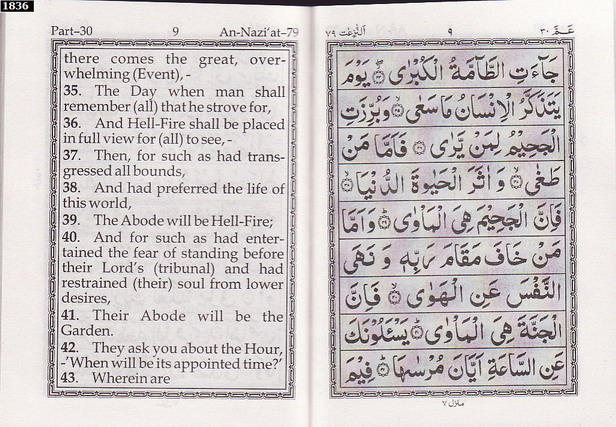 1836
Part–30 9 An-Nazi'at–79
there comes the great, over-
whelming (Event), -
35. The Day when man shall
remember (all) that he strove for,
36. And Hell-Fire shall be placed
in full view for (all) to see,-
37. Then, for such as had trans-
gressed all bounds,
38. And had preferred the life of
this world,
39. The Abode will be Hell-Fire;
40. And for such as had enter-
tained the fear of standing before
their Lord's (tribunal) and had
restrained (their) soul from lower
desires,
41. Their Abode will be the
Garden.
42. They ask you about the Hour,
-'When will be its appointed time?'
43. Wherein are
عَمَّ ٣٠ ٩ اَلنّٰزِعٰت ٧٩
جَآءَتِ الطَّآمَّةُ الْكُبْرٰى ۝٣٤ يَوْمَ
يَتَذَكَّرُ الْاِنْسَانُ مَا سَعٰى ۝٣٥ وَبُرِّزَتِ
الْجَحِيْمُ لِمَنْ يَّرٰى ۝٣٦ فَاَمَّا مَنْ
طَغٰى ۝٣٧ وَاٰثَرَ الْحَيٰوةَ الدُّنْيَا ۝٣٨
فَاِنَّ الْجَحِيْمَ هِيَ الْمَاْوٰى ۝٣٩ وَاَمَّا
مَنْ خَافَ مَقَامَ رَبِّهٖ وَ نَهَى
النَّفْسَ عَنِ الْهَوٰى ۝٤٠ فَاِنَّ
الْجَنَّةَ هِيَ الْمَاْوٰى ۝٤١ يَسْـَٔلُوْنَكَ
عَنِ السَّاعَةِ اَيَّانَ مُرْسٰىهَا ۝٤٢ فِيْمَ
منزل ٧